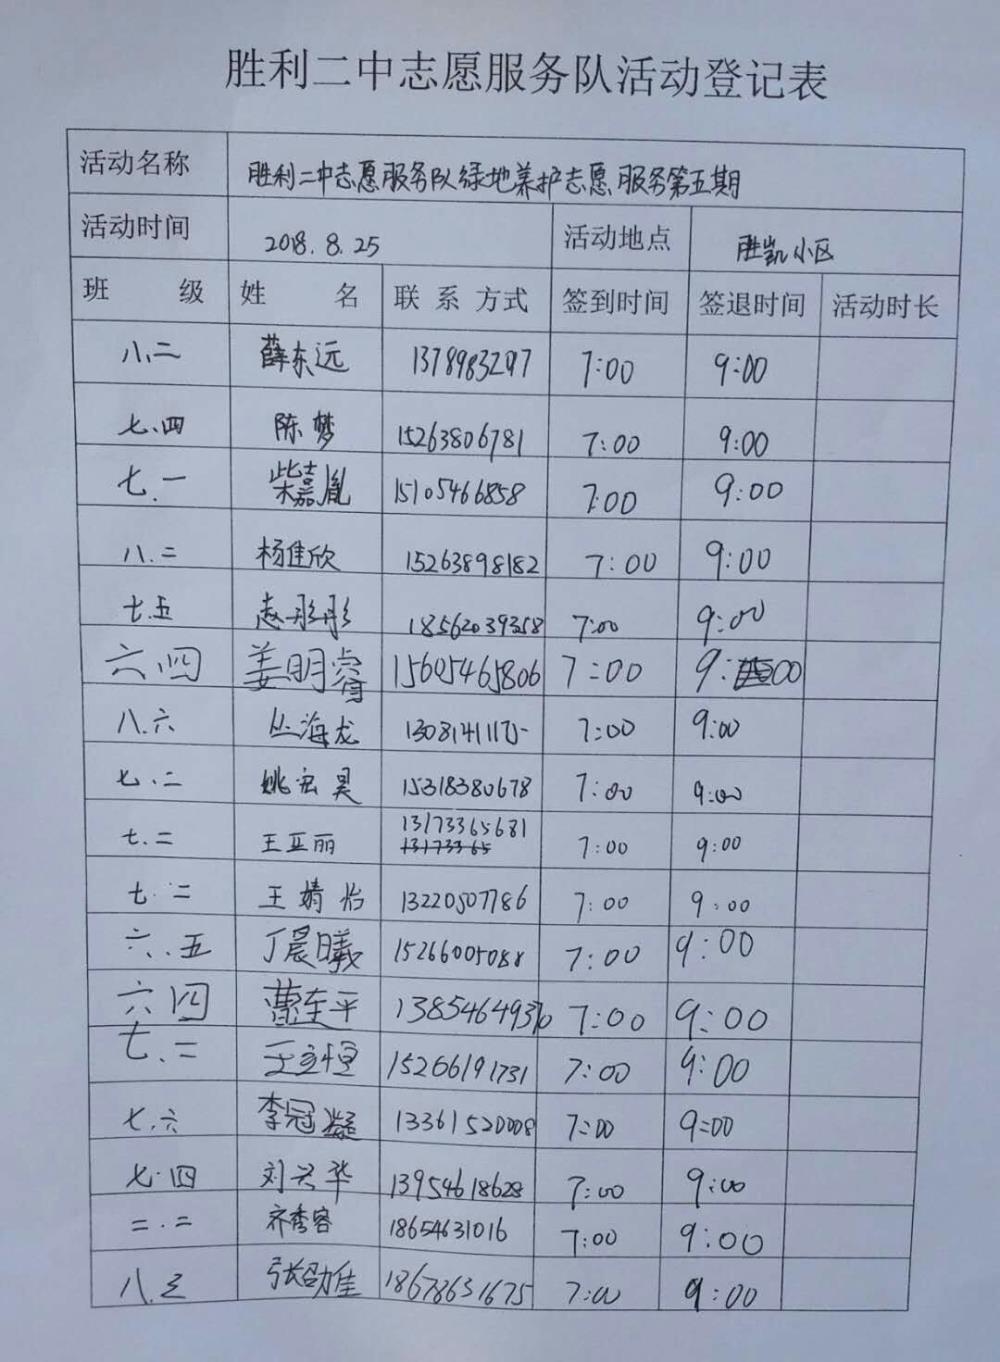 胜利二中志愿服务队活动登记表
活动名称 胜利二中志愿服务队绿地养护志愿服务第五期
活动时间 2018.8.25 活动地点 胜凯小区
班 级 姓 名 联 系 方式 签到时间 签退时间 活动时长
八.二 薛东远 1378983297 7:00 9:00
七.四 陈梦 15263806781 7:00 9:00
七.一 柴嘉胤 15105466858 7:00 9:00
八.二 杨佳欣 15263898182 7:00 9:00
七.五 赵彤彤 18562039358 7:00 9:00
六.四 姜明睿 15605465806 7:00 9:00
八.六 丛海龙 7:00 9:00
七.二 姚宏昊 15318380678 7:00 9:00
七.二 王亚丽 13173365681 7:00 9:00
13173365
七.二 王婧怡 13220507786 7:00 9:00
六.五 丁晨曦 15266005088 7:00 9:00
六四 曹东平 7:00 9:00
七.二 王立恒 15266191731 7:00 9:00
七.六 李冠凝 13361520008 7:00 9:00
七.四 刘兴华 13954618628 7:00 9:00
二.二 齐秀容 18654631016 7:00 9:00
八.三 张劭佳 18678631675 7:00 9:00